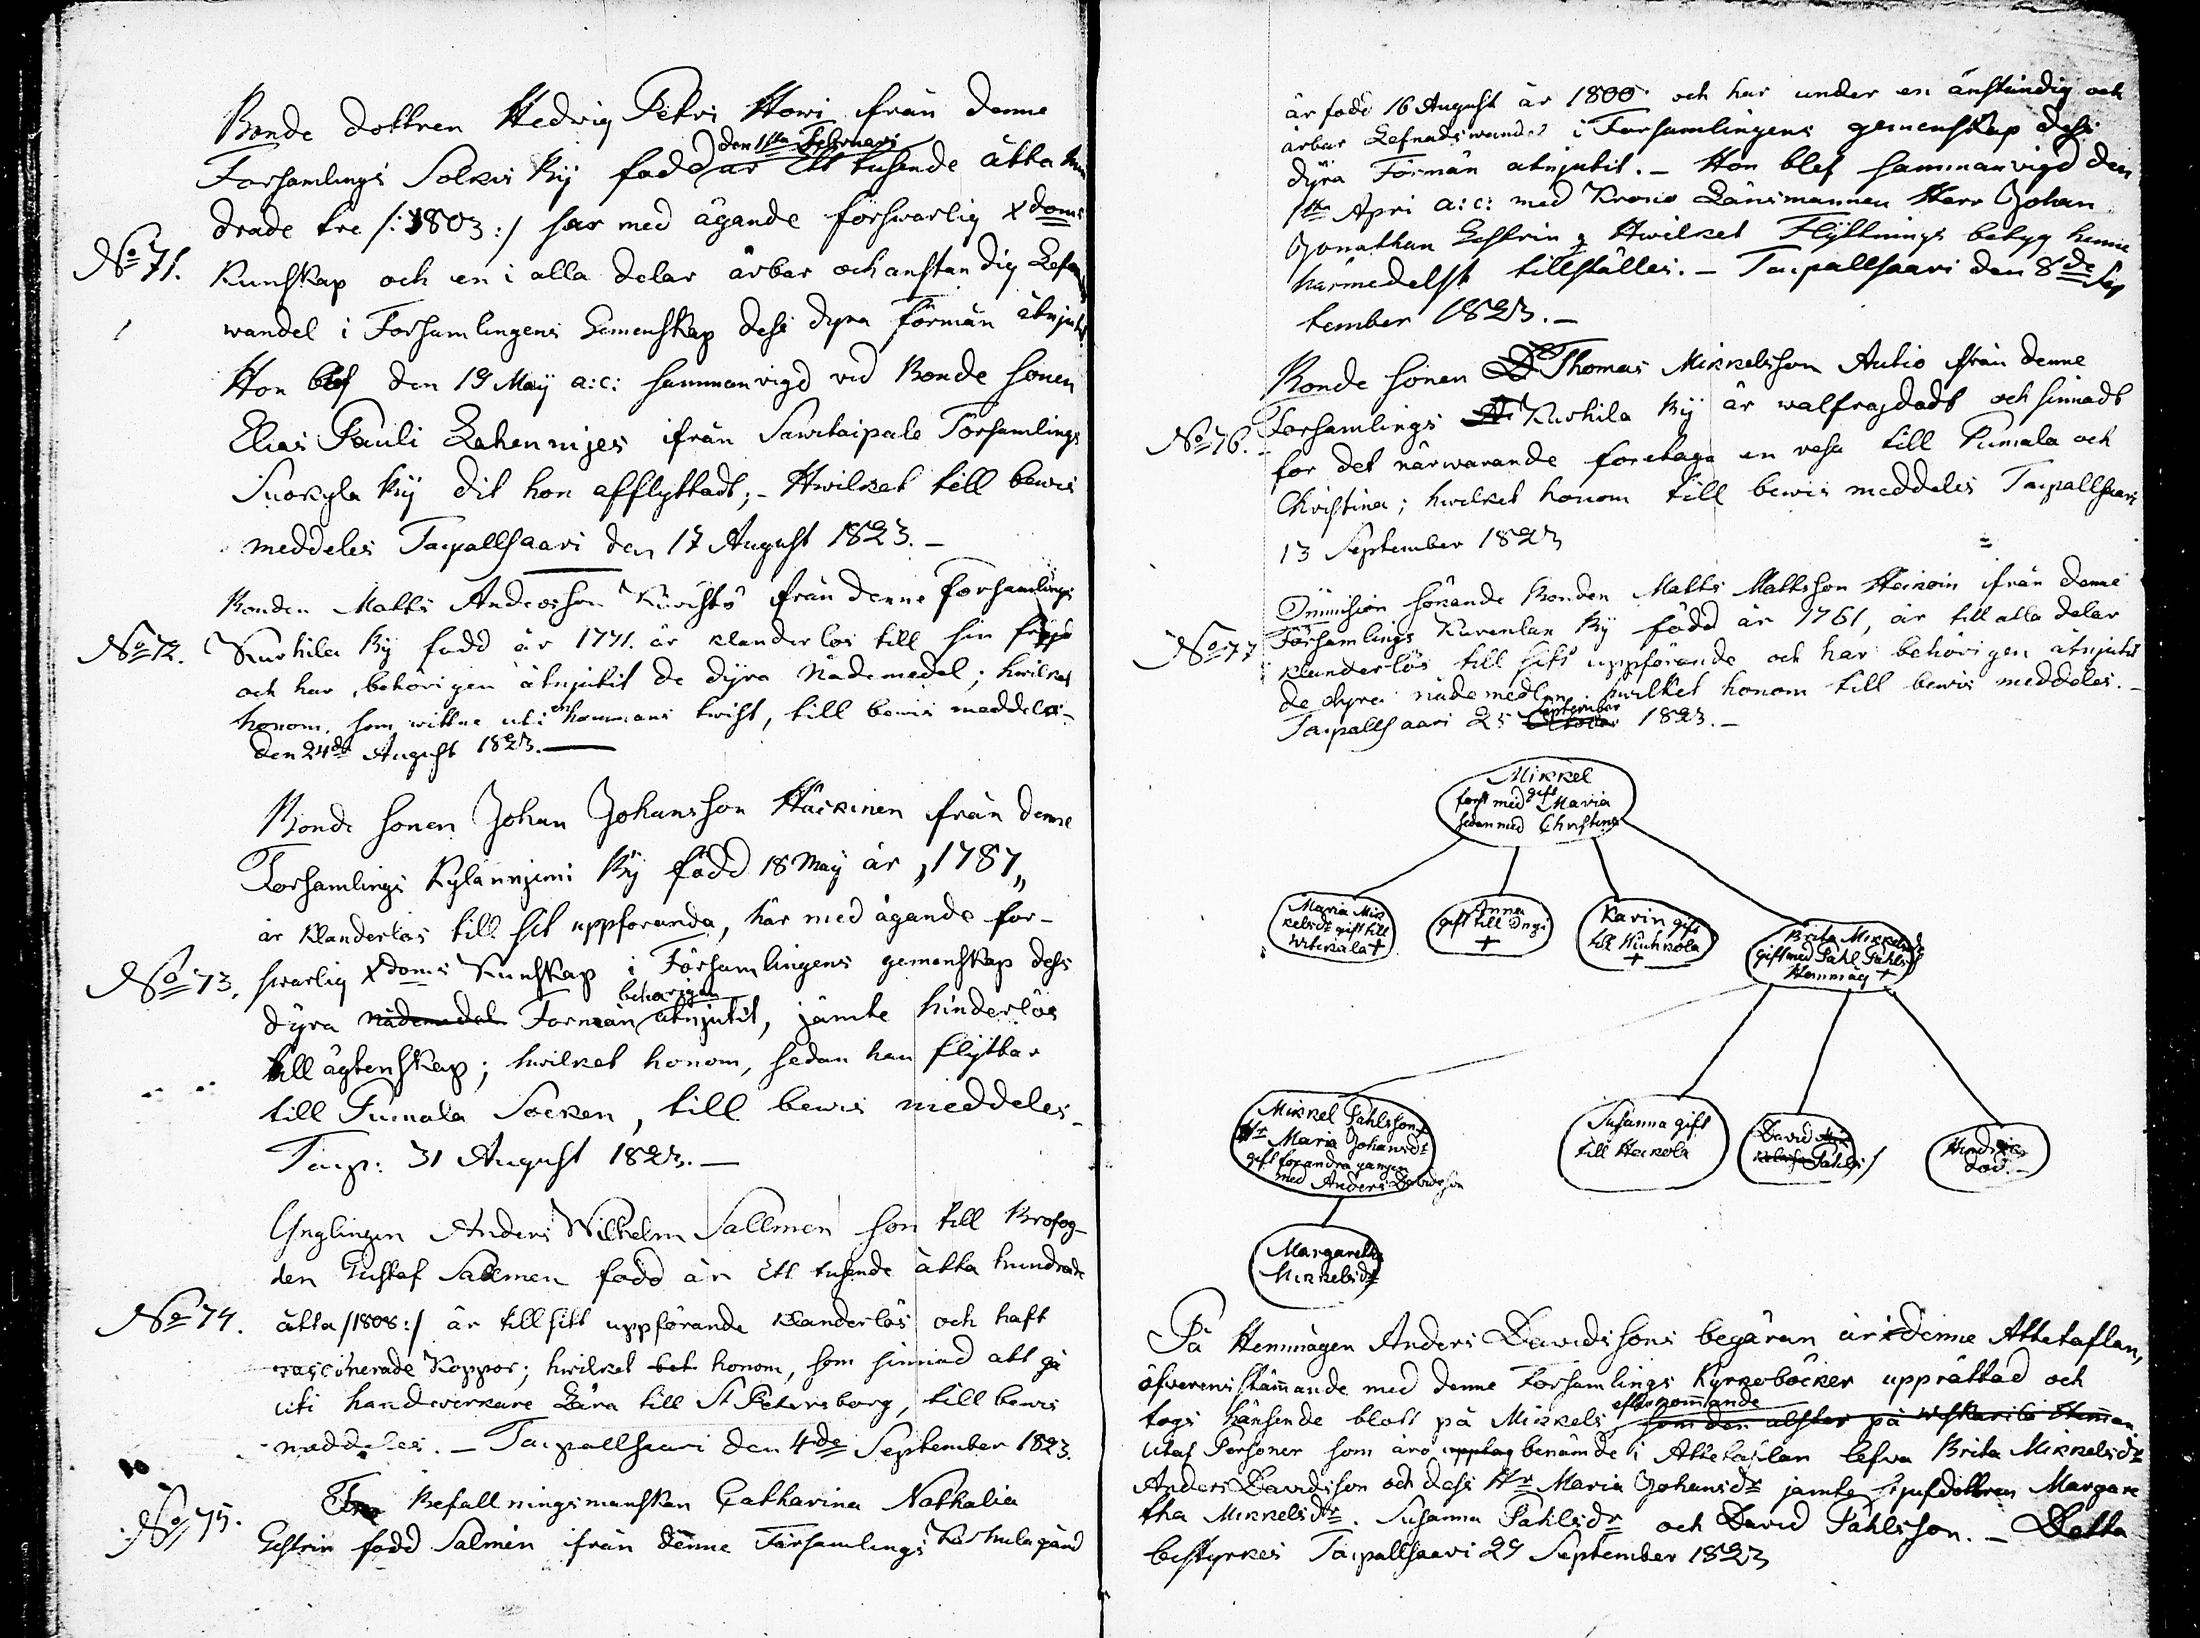 Bonde dottren Hedvig Petri Howi ifrån denne
den 1sta Februari
Forsamlings Solkis By född år Ett tusende åtta hun
drade tre /: 1803 :/ har med ägande förswarlig Xdoms
No 71.
Kunskap och en i alla delar ärbar och anständig Lefna
wandel i Forsamlingens Gemenskap dess dyra förmån åtnjutit
Hon blef den 19 Maÿ a: c: sammanvigd vid Bonde sonen
Elias Pauli Lahennijes ifrån Sawitaipale Församlings
Suokyla By dit hon afflyttadt; - Hwilket till bewis
meddeles Taipallsaari den 17 August 1823. -
Bonden Matts Andersson Kärihtö ifrån denne Forsamlings
No 72.
Kurhila By född år 1771. är klanderlös till sin
och har behörigen åtnjutit de dÿra Nådemedel; hwilket
honom, som wittne uti en hommans twist, till bewis meddeles -
den 24de August 1823.
Bonde sonen Johan Johansson Häkkinen ifrån denne
Forsamlings Kylänniemi By född 18 Maÿ år „1787„
är klanderlös till sit uppförande, har med ägande för-
No 73.
swarlig Xdoms Kunskap i Församlingens gemenskap dess
behörigen
dÿra Nådemedel Formån åtnjutit, jämte hinderlös
till ägtenskap; hwilket honom, sedan han flÿttar
till Pumala Socken, till bewis meddeles -
Taip: 31 August 1823. -
Ynglingen Anders Wilhelm Sallmen son till Brofog-
den Gustaf Sallmen född år Ett tusende åtta hundrade
No 74.
åtta /1808 :/ är till sitt uppförande klanderlös och haft
vaccinerade Koppor; hwilket bet honom, som sinnad att gå
uti handwerkare Lära till St Petersborg, till bewis
meddeles. - Taipallsaari den 4de September 1823.
No 75.
Befallningsmanskan Catharina Nathalia
Gestrin född Salmén ifrån denne Församlings Kärhula gård
är född 16 August år 1800 och har under en änständig och
ärbar Lefnadswandel i Forsamlingens gemenskap dess
dÿra Förmån åtnjutit. - Hon blef sammanvigd den
1ste Apri a: c: med Krono Länsmannen Herr Johan
Jonathan Gestrin Hwilket Flÿttnings betyg henne
härmedelst tillställes. - Taipallsaari den 8de Sep
tember 1823. -
Bonde sonen Thomas Mikkelsson Autio ifrån denne
Forsamlings Kurhila By är walfrägdadt och sinnadt
No 76.
for det närwarande foretaga en resa till Pumala och
Christina; hwilket honom till bewis meddeles Taipallsaari
13 September 1823
Dimision sökande Bonden Matts Mattsson Heikoin ifrån denne
No 77
Församlings Kurenlan By född år 1761, är till alla delar
klanderlös till sitt uppförande och har behörigen åtnjutit
de dyra nådemedlen. hwilket honom till bewis meddeles. -
September
Taipallsaari 25 October 1823. -
Mikkel
gift
först med Maria
sedan med Christina
Maria Mik
kelsdr gift till
Witikala +
Anna
gift till Ingi
+
Karin gift
till Kiuhkola
+
Brita Mikkelsdr
gift med Påhl Påhlss
Hemmäg +
Mikkel Påhlsson +
Hr Maria Johansdr
gift för andra gangen
med Anders Davidsson
Susanna gift
till Heikola
David Mik
kelss Påhls
Hindric
död. -
Margaretha
Mikkelsdr
På Hemmägen Anders Davidssons begäran är denne Attetaflan,
öfverensstämmande med denne Forsamlings Kyrkoböcker upprättad och
efterkommande
togs hänseende blott på Mikkels som den alster på
Utaf Personer som äro upptag benämde i Attetaflan lefva Brita Mikkelsdr
Anders Davidsson och dess Hr Maria Johansdr jämte stjufdottren Margare
tha Mikkelsdr. Susanna Påhlsdr och David Påhlsson. - Detta
bestyrkes Taipallsaari 29 September 1823